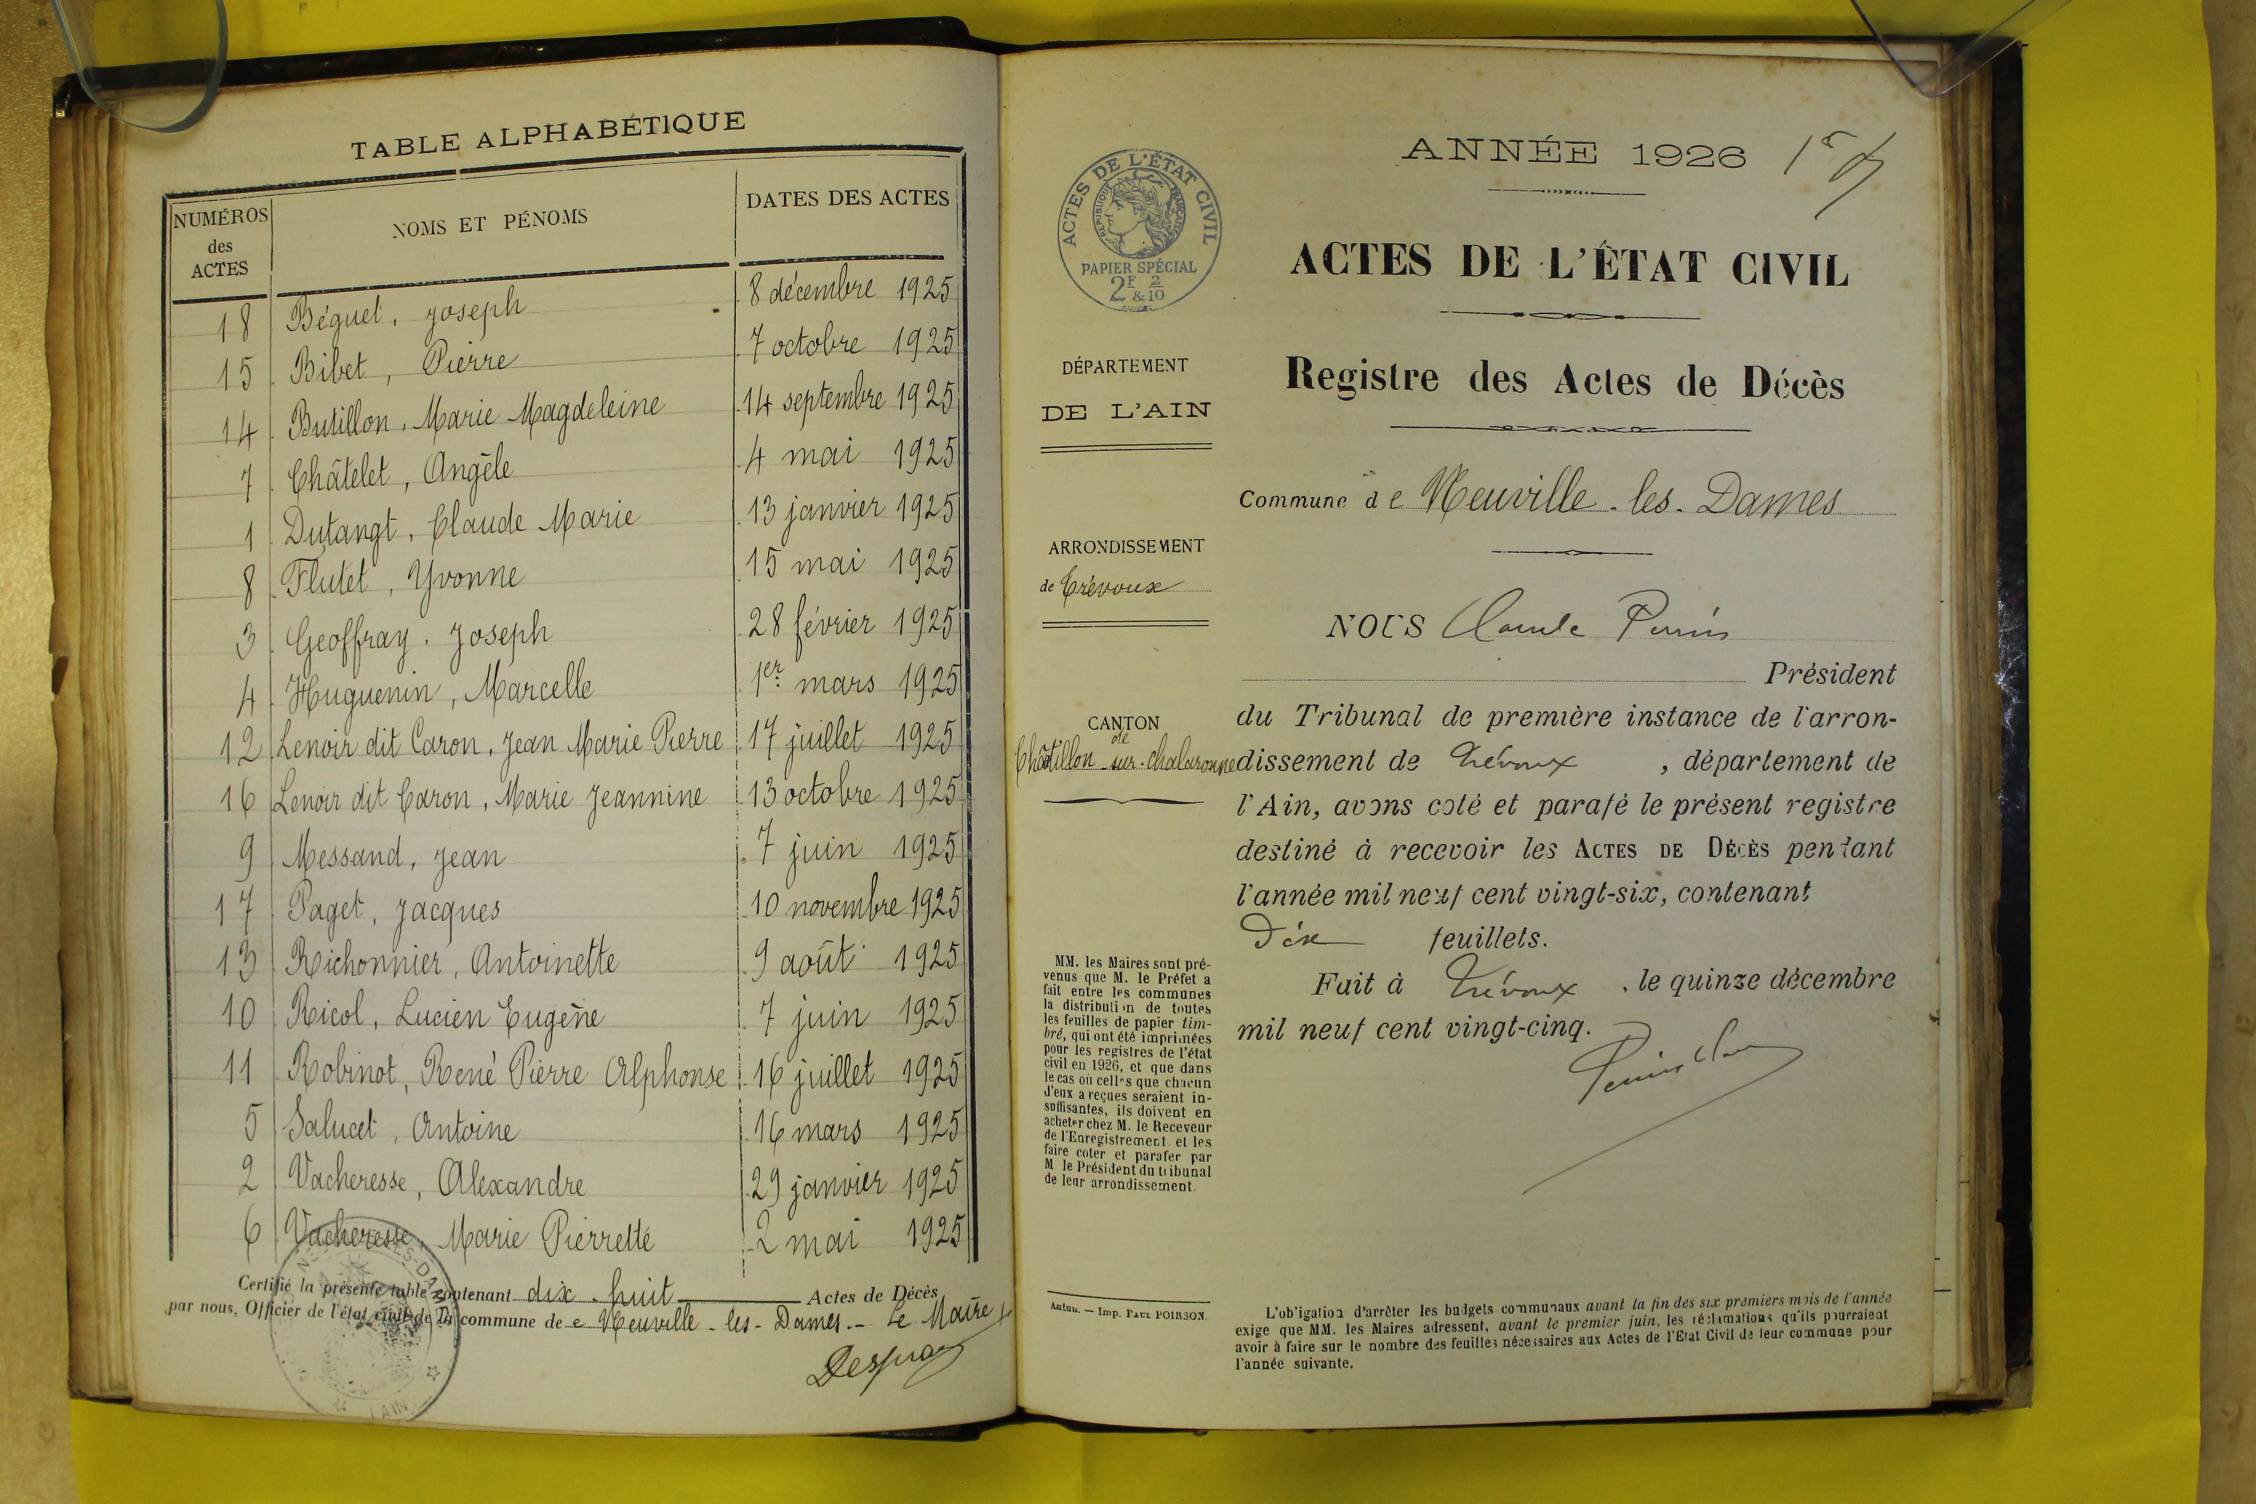 TABLE ALPHABÉTIQUE
NUMÉROS des ACTES
NOMS ET PÉNOMS
DATES DES ACTES
18 Béguet, Joseph 8 décembre 1925
15 Bibet, Pierre 7 octobre 1925
14 Butillon, Marie Magdeleine 14 septembre 1925
7 Châtelet, Angèle 4 mai 1925
1 Dutangt, Claude Marie 13 janvier 1925
8 Flutet, Yvonne 15 mai 1925
3 Geoffray, Joseph 28 février 1925
4 Huguenin, Marcelle 1er mars 1925
12 Lenoir dit Caron, Jean Marie Pierre 17 juillet 1925
16 Lenoir dit Caron, Marie Jeannine 13 octobre 1925
9 Messand, Jean 7 juin 1925
17 Paget, Jacques 10 novembre 1925
13 Richonnier, Antoinette 9 août 1925
10 Ricol, Lucien Eugène 7 juin 1925
11 Robinot, René Pierre Alphonse 16 juillet 1925
5 Salucet, Antoine 16 mars 1925
2 Vacheresse, Alexandre 29 janvier 1925
6 Vacheresse, Marie Pierrette 2 mai 1925
Certifié la présente table contenant dix-huit Actes de Décès
par nous, Officier de l'état civil de la commune de e Neuville-les-Dames.- Le Maire
AIN
ANNÉE 1926
ACTES DE L'ÉTAT CIVIL
RÉPUBLIQUE FRANÇAISE
PAPIER SPÉCIAL
2F & 2/10
ACTES DE L'ÉTAT CIVIL
Registre des Actes de Décès
Commune de Neuville-les-Dames
DÉPARTEMENT
DE L'AIN
ARRONDISSEMENT
de Trévoux
CANTON
de
Châtillon-sur-Chalaronne
MM. les Maires sont pré-
venus que M. le Préfet a
fait entre les communes
la distribution de toutes
les feuilles de papier tim-
bré, qui ont été imprimées
pour les registres de l'état
civil en 1926, et que dans
le cas où celles que chacun
d'eux a reçues seraient in-
suffisantes, ils doivent en
acheter chez M. le Receveur
de l'Enregistrement et les
faire coter et parafer par
M le Président du tribunal
de leur arrondissement.
Autun. — Imp. PAUL POIRSON.
NOUS Claude Perrin
Président
du Tribunal de première instance de l'arron-
dissement de Trévoux, département de
l'Ain, avons coté et parafé le présent registre
destiné à recevoir les ACTES DE DÉCÈS pendant
l'année mil neuf cent vingt-six, contenant
Dix feuillets.
Fait à Trévoux, le quinze décembre
mil neuf cent vingt-cinq.
L'obligation d'arrêter les budgets communaux avant la fin des six premiers mois de l'année
exige que MM. les Maires adressent, avant le premier juin, les réclamations qu'ils pourraient
avoir à faire sur le nombre des feuilles nécessaires aux Actes de l'État Civil de leur commune pour
l'année suivante.